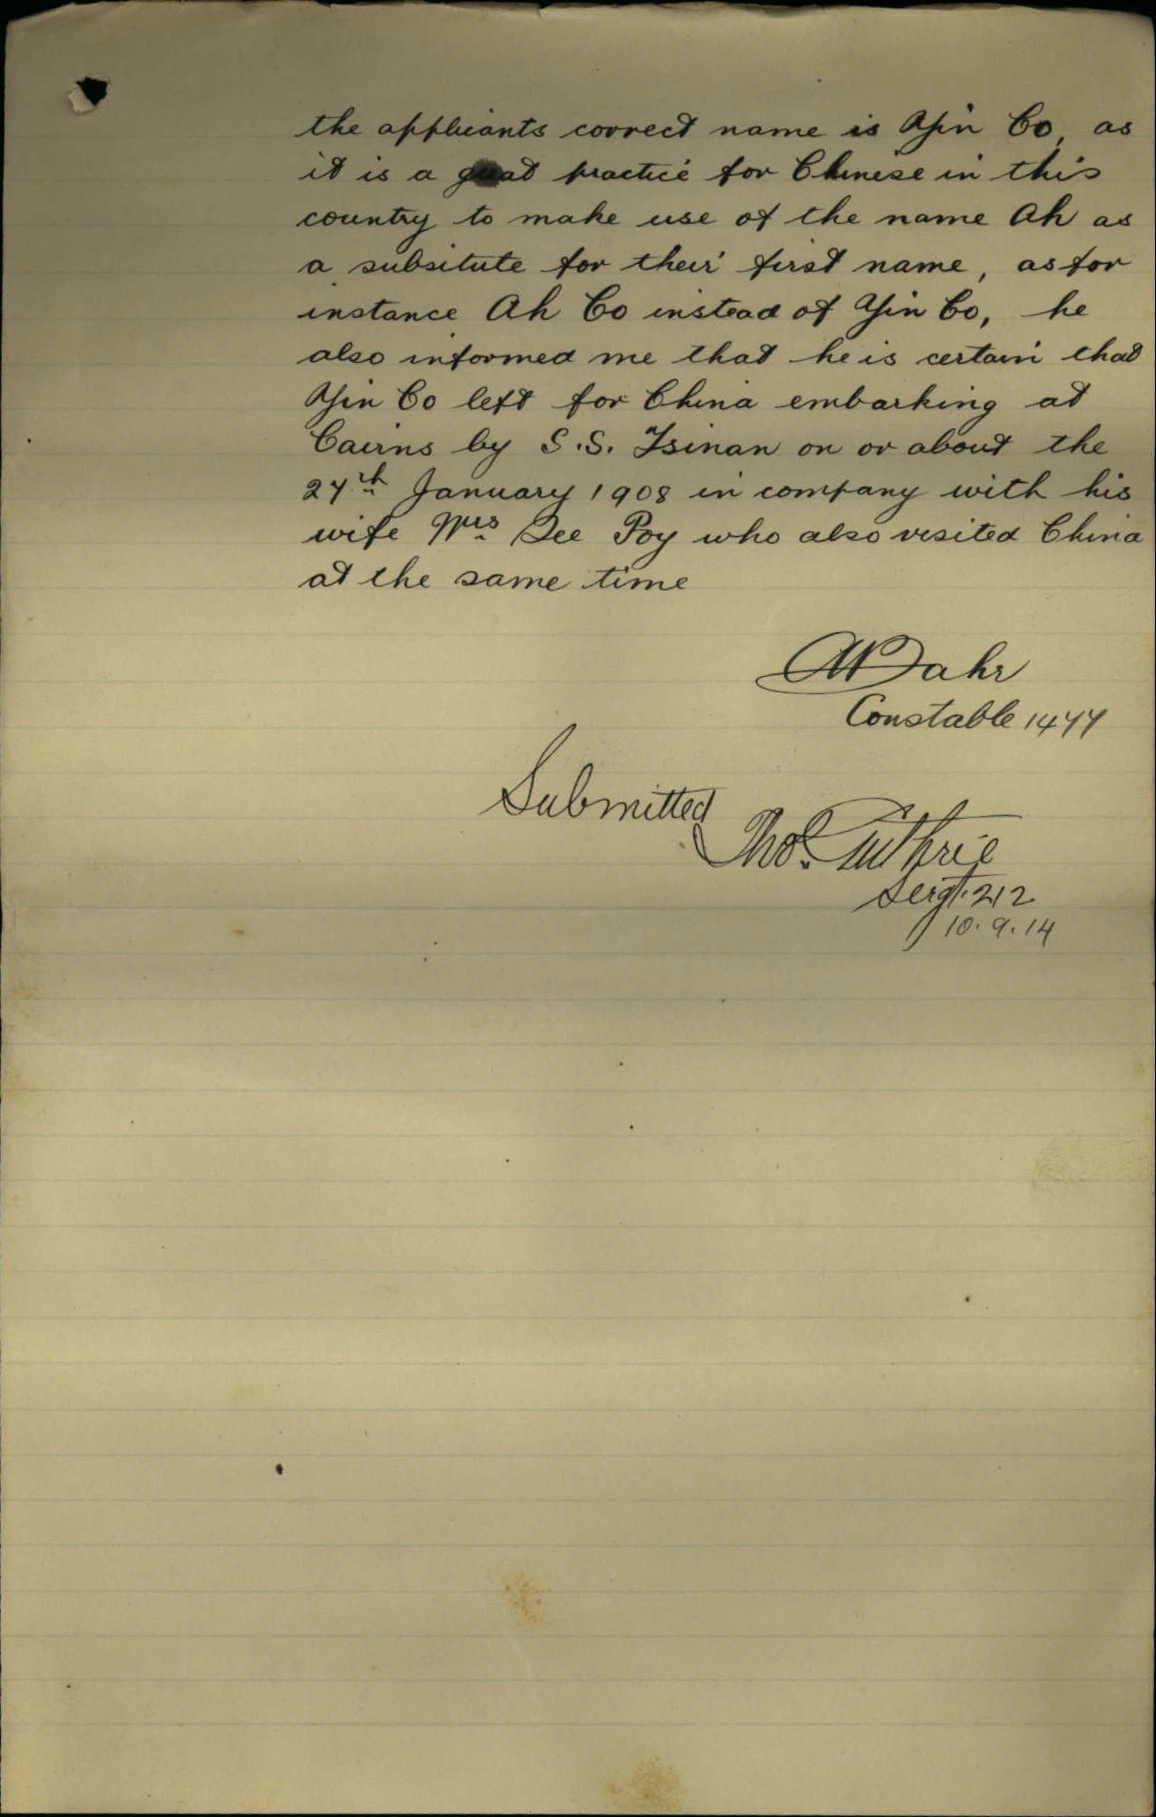 the applicants correct name is Yin Co, as
it is a great practice for Chinese in this
country to make use of the name Ah as
a subsitute for their first name, as for
instance Ah Co instead of Yin Co, he
also informed me that he is certain that
Yin Co left for China embarking at
Cairns by S.S. Tsinan on or about the
27th January 1908 in company with his
wife Mrs See Poy who also visited China
at the same time
Dahr
Constable 1477
Submitted
Thos. Guthrie
Sergt. 212
10.9.14